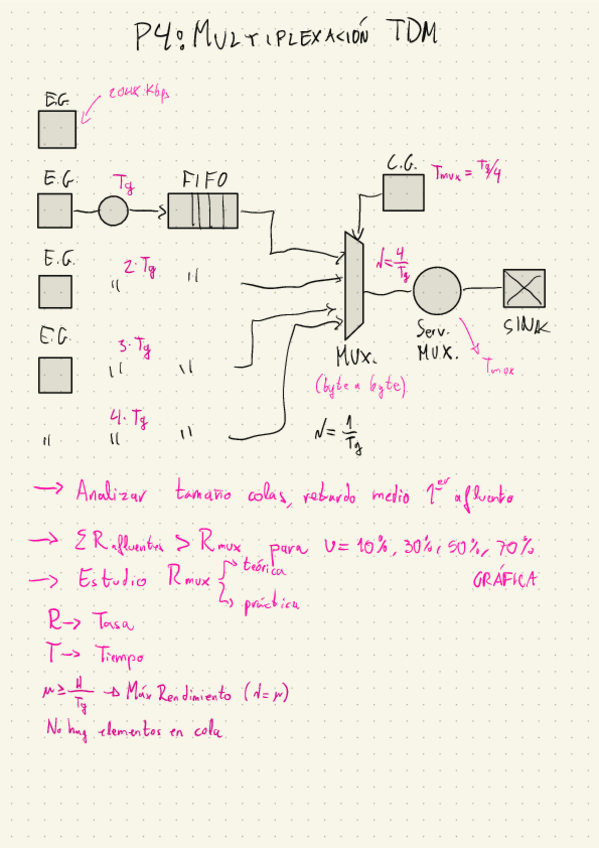 P4: MULTIPLEXACIÓN TDM
E.G.
E.G.
Tg
FIFO
C.G.
Tmux = Tg/4
E.G.
2·Tg
"
λ = 4/Tg
E.G.
3·Tg
"
"
MUX.
Serv. MUX.
SINK
Tmux
(byte a byte)
4·Tg
"
"
"
λ = 1/Tg
→ Analizar tamaño colas, retardo medio 1er afluente
→ ΣRafluentes > Rmux para U = 10%, 30%, 50%, 70%
→ Estudio Rmux
teórica
práctica
GRÁFICA
R → Tasa
T → Tiempo
μ ≥ 4/Tg → Máx Rendimiento (λ=μ)
No hay elementos en cola